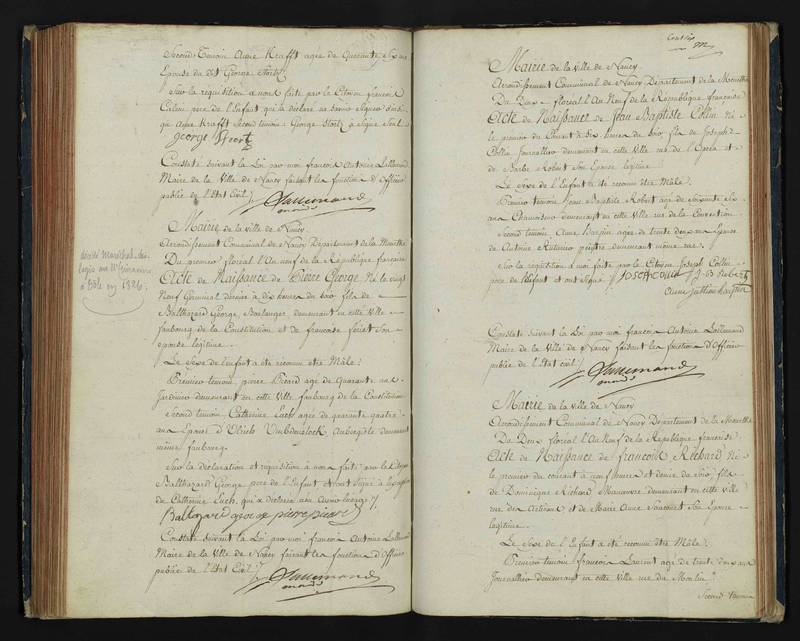 Second Temoin Anne Krafft agée de Quarante six ans
Epouse du dit George Stortz
Sur la requisition a nous faite par le Citoyen francois
pere de l'Enfant qui la declaré ne savoir Signer d'ainsi
que Anne Krafft Second temoin George Stortz a Signé Seul
george Stortz
Constaté suivant la Loi par moi francois Antoine Lallemand
Maire de la Ville de Nancy faisant les fonctions d'Officier
public de l'Etat Civil
Lallemand
Mairie de la Ville de Nancy
Arrondissement Communal de Nancy Departement de la Meurthe
Du premier floreal l'An neuf de la Republique française
Acte de Naissance de Pierre George Né le vingt
neuf Germinal dernier à dix heures du soir fils de
Balthazard George Boulanger demeurant en cette Ville
faubourg de la Constitution et de francoise son
epouse legitime
Le Sexe de l'enfant a été reconnu être Mâle
Premier temoin pierre Picard agé de Quarante ans
Jardinier demeurant en cette Ville faubourg de la Constitution
Second temoin Catherine Luch agée de quarante quatre
ans Epouse d'Ulrich Aubergiste demeurant
même faubourg
Sur la declaration et requisition à nous faite par le Citoyen
Balthazard George pere de l'Enfant et ont Signé à l'exception
de Catherine Luch qui a declaré non
Baltazard george pierre picard
Constaté suivant la Loi par moi francois Antoine Lallemand
Maire de la Ville de Nancy faisant les fonctions d'Officier
public de l'Etat Civil
Lallemand
décédé maréchal des
logis au
en 1826
Mairie de la Ville de Nancy
Arrondissement Communal de Nancy Departement de la Meurthe
Du Deux floreal l'An Neuf de la Republique française
Acte de Naissance de Jean Baptiste Collin Né
le premier du Courant à dix heures du soir fils de Joseph
Collin Journallier demeurant en cette Ville rue de l'Opera et
de Barbe Robert Son Epouse legitime
Le Sexe de l'Enfant a été reconnu être Mâle
Premier temoin Jean Baptiste Robert agé de Soixante six
ans Chamoiseur demeurant en cette Ville rue de la Convention
Second temoin Anne agée de trente deux ans Epouse
de Antoine peintre demeurant même rue
Sur la requisition à moi faite par le Citoyen Joseph Collin
pere de l'Enfant et ont Signé JOSEPH COLLIN J. B Robert
Anne
Constaté suivant la Loi par moi francois Antoine Lallemand
Maire de la Ville de Nancy faisant les fonctions d'Officier
public de l'Etat Civil
Lallemand
Mairie de la Ville de Nancy
Arrondissement Communal de Nancy Departement de la Meurthe
Du Deux floreal l'An Neuf de la Republique française
Acte de Naissance de francois Richard Né
le premier du courant à neuf heures et demie du soir fils
de Dominique Richard Manœuvre demeurant en cette Ville
rue des Artisans et de Marie Anne Son Epouse
legitime
Le Sexe de l'Enfant a été reconnu être Mâle
Premier temoin francois Laurent agé de trente deux ans
Journallier demeurant en cette Ville rue du Moulin
Second Temoin